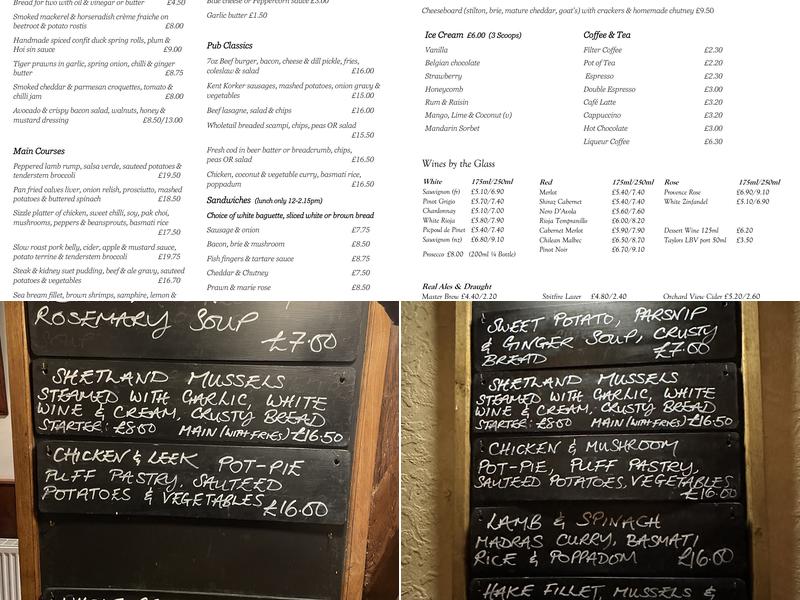 Bread for two with oil & vinegar or butter £4.50
Smoked mackerel & horseradish crème fraiche on
beetroot & potato rostis £8.00
Handmade spiced confit duck spring rolls, plum &
Hoi sin sauce £9.00
Tiger prawns in garlic, spring onion, chilli & ginger
butter £8.75
Smoked cheddar & parmesan croquettes, tomato &
chilli jam £8.00
Avocado & crispy bacon salad, walnuts, honey &
mustard dressing £8.50/13.00
Main Courses
Peppered lamb rump, salsa verde, sauteed potatoes &
tenderstem broccoli £19.50
Pan fried calves liver, onion relish, prosciutto, mashed
potatoes & buttered spinach £18.50
Sizzle platter of chicken, sweet chilli, soy, pak choi,
mushrooms, peppers & beansprouts, basmati rice
£17.50
Slow roast pork belly, cider, apple & mustard sauce,
potato terrine & tenderstem broccoli £19.75
Steak & kidney suet pudding, beef & ale gravy, sauteed
potatoes & vegetables £16.70
Sea bream fillet, brown shrimps, samphire, lemon &
Blue cheese or Peppercorn sauce £3.00
Garlic butter £1.50
Pub Classics
7oz Beef burger, bacon, cheese & dill pickle, fries,
coleslaw & salad £16.00
Kent Korker sausages, mashed potatoes, onion gravy &
vegetables £15.00
Beef lasagne, salad & chips £16.00
Wholetail breaded scampi, chips, peas OR salad
£15.50
Fresh cod in beer batter or breadcrumb, chips,
peas OR salad £16.50
Chicken, coconut & vegetable curry, basmati rice,
poppadum £16.50
Sandwiches (lunch only 12-2.15pm)
Choice of white baguette, sliced white or brown bread
Sausage & onion £7.75
Bacon, brie & mushroom £8.50
Fish fingers & tartare sauce £8.75
Cheddar & Chutney £7.50
Prawn & marie rose £8.50
Cheeseboard (stilton, brie, mature cheddar, goat's) with crackers & homemade chutney £9.50
Ice Cream £6.00 (3 Scoops)
Vanilla
Belgian chocolate
Strawberry
Honeycomb
Rum & Raisin
Mango, Lime & Coconut (v)
Mandarin Sorbet
Coffee & Tea
Filter Coffee £2.30
Pot of Tea £2.20
Espresso £2.30
Double Espresso £3.00
Café Latte £3.20
Cappuccino £3.20
Hot Chocolate £3.00
Liqueur Coffee £6.30
Wines by the Glass
White 175ml/250ml
Sauvignon (fr) £5.10/6.90
Pinot Grigio £5.70/7.40
Chardonnay £5.10/7.00
White Rioja £5.80/7.90
Picpoul de Pinet £5.40/7.40
Sauvignon (nz) £6.80/9.10
Prosecco £8.00 (200ml ¼ Bottle)
Red 175ml/250ml
Merlot £5.40/7.40
Shiraz Cabernet £5.40/7.40
Nero D'Avola £5.60/7.60
Rioja Tempranillo £6.00/8.20
Cabernet Merlot £5.90/7.90
Chilean Malbec £6.50/8.70
Pinot Noir £6.70/9.10
Rose 175ml/250ml
Provence Rose £6.90/9.10
White Zinfandel £5.10/6.90
Dessert Wine 125ml £6.20
Taylors LBV port 50ml £3.50
Real Ales & Draught
Master Brew £4.40/2.20 Spitfire Lager £4.80/2.40 Orchard View Cider £5.20/2.60
ROSEMARY SOUP
£7.00
SHETLAND MUSSELS
STEAMED WITH GARLIC, WHITE
WINE & CREAM, CRUSTY BREAD
STARTER: £8.00 MAIN (WITH FRIES) £16.50
CHICKEN & LEEK POT-PIE
PUFF PASTRY, SAUTEED
POTATOES & VEGETABLES £16.00
SWEET POTATO, PARSNIP
& GINGER SOUP, CRUSTY
BREAD £7.00
SHETLAND MUSSELS
STEAMED WITH GARLIC, WHITE
WINE & CREAM, CRUSTY BREAD
STARTER: £8.00 MAIN (WITH FRIES) £16.50
CHICKEN & MUSHROOM
POT-PIE, PUFF PASTRY,
SAUTEED POTATOES, VEGETABLES
£16.00
LAMB & SPINACH
MADRAS CURRY, BASMATI
RICE & POPPADOM £16.00
HAKE FILLET, MUSSELS &